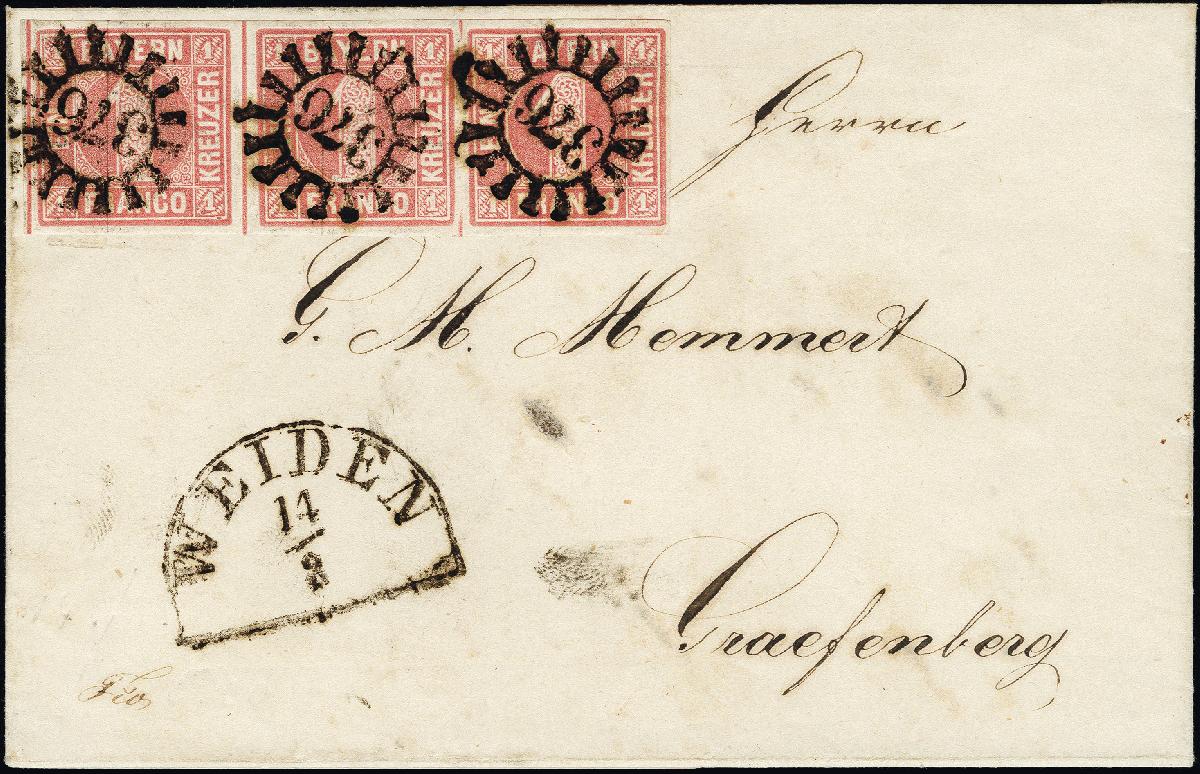 BAYERN 1
KREUZER
FRANCO 1
376
BAYERN 1
KREUZER
FRANCO 1
376
1 BAYERN 1
KREUZER
1 FRANCO 1
376
Herrn
G. M. Memmert
WEIDEN
14
8
Graefenberg
Fco